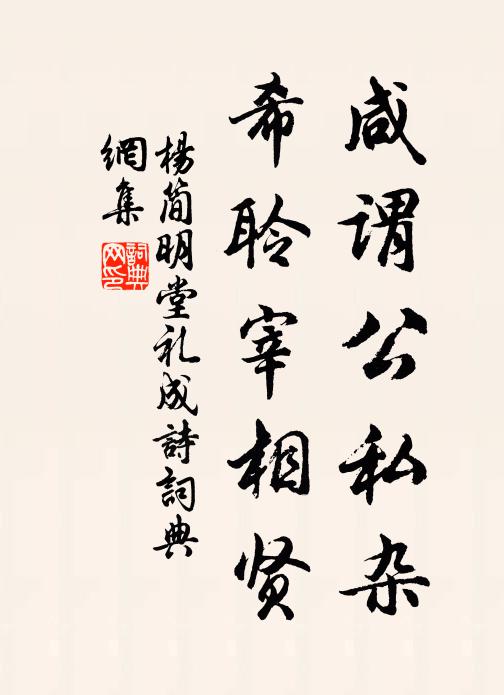 咸谓公私杂
希聆宰相贤
楊简明堂礼成詩詞典
網集
詞典网印